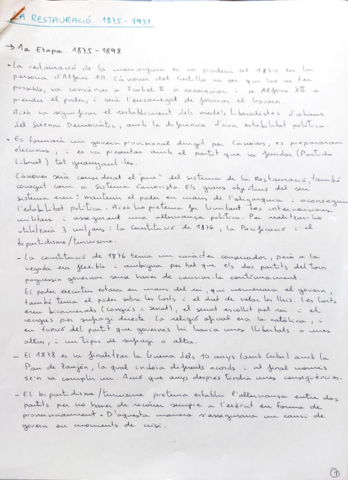 LA RESTAURACIÓ 1875-1931
→ 1a Etapa: 1875-1898
• La restauració de la monarquia es va produir al 1874 en la
persona d'Alfons XII. Cánovas del Castillo va ser qui les va fer
possible, va convèncer a Isabel II a renunciar i a Alfons XII a
prendre el poder, i serà l'encarregat de formar el Govern.
Això va significar el restabliment dels models liberalistes d'abans
del Sexenni Democràtic, amb la diferència d'una estabilitat política.
• Es formarà un govern provisional dirigit per Cánovas, es prepararan
eleccions, i es va presentar amb el partit que va fundar (Partido
Liberal) tot guanyant-les.
Cánovas serà considerat el pare del sistema de la Restauració, també
conegut com a Sistema Canovista. Els grans objectius del seu
sistema eren: mantenir el poder en mans de l'oligarquia i aconseguir
l'estabilitat política. Això ho pretenia fer limitant les intervencions
militars i assegurant una alternança política. Per realitzar-ho
utilitzarà 3 mitjans: la constitució de 1876, la Pacificació i el
bipartidisme/turnisme.
- La constitució de 1876 tenia un caràcter conservador, però a la
vegada era flexible i ambigua per tal que els dos partits del torn
poguessin governar sense haver de canviar-la contínuament.
El poder executiu estava en mans del rei, qui nomenava el govern,
també tenia el poder sobre les Corts i el dret de vetar les lleis. Les Corts
eren bicamerals (congrés i senat), el senat escollit pel rei i el
congrés per sufragi directe. La religió oficial era la catòlica, i
en funció del partit que governés hi havia unes llibertats o unes
altres, i un tipus de sufragi o altre.
- El 1878 es va finalitzar la Guerra dels 10 anys (amb Cuba) amb la
Pau de Zanjón, la qual incloïa diferents acords i al final només
se'n va complir un. Això que anys després tindrà unes conseqüències.
- El bipartidisme/turnisme pretenia establir l'alternança entre dos
partits per no haver de recórrer sempre a l'exèrcit en forma de
pronunciament. D'aquesta manera s'assegurava un canvi de
govern en moments de crisi.
1